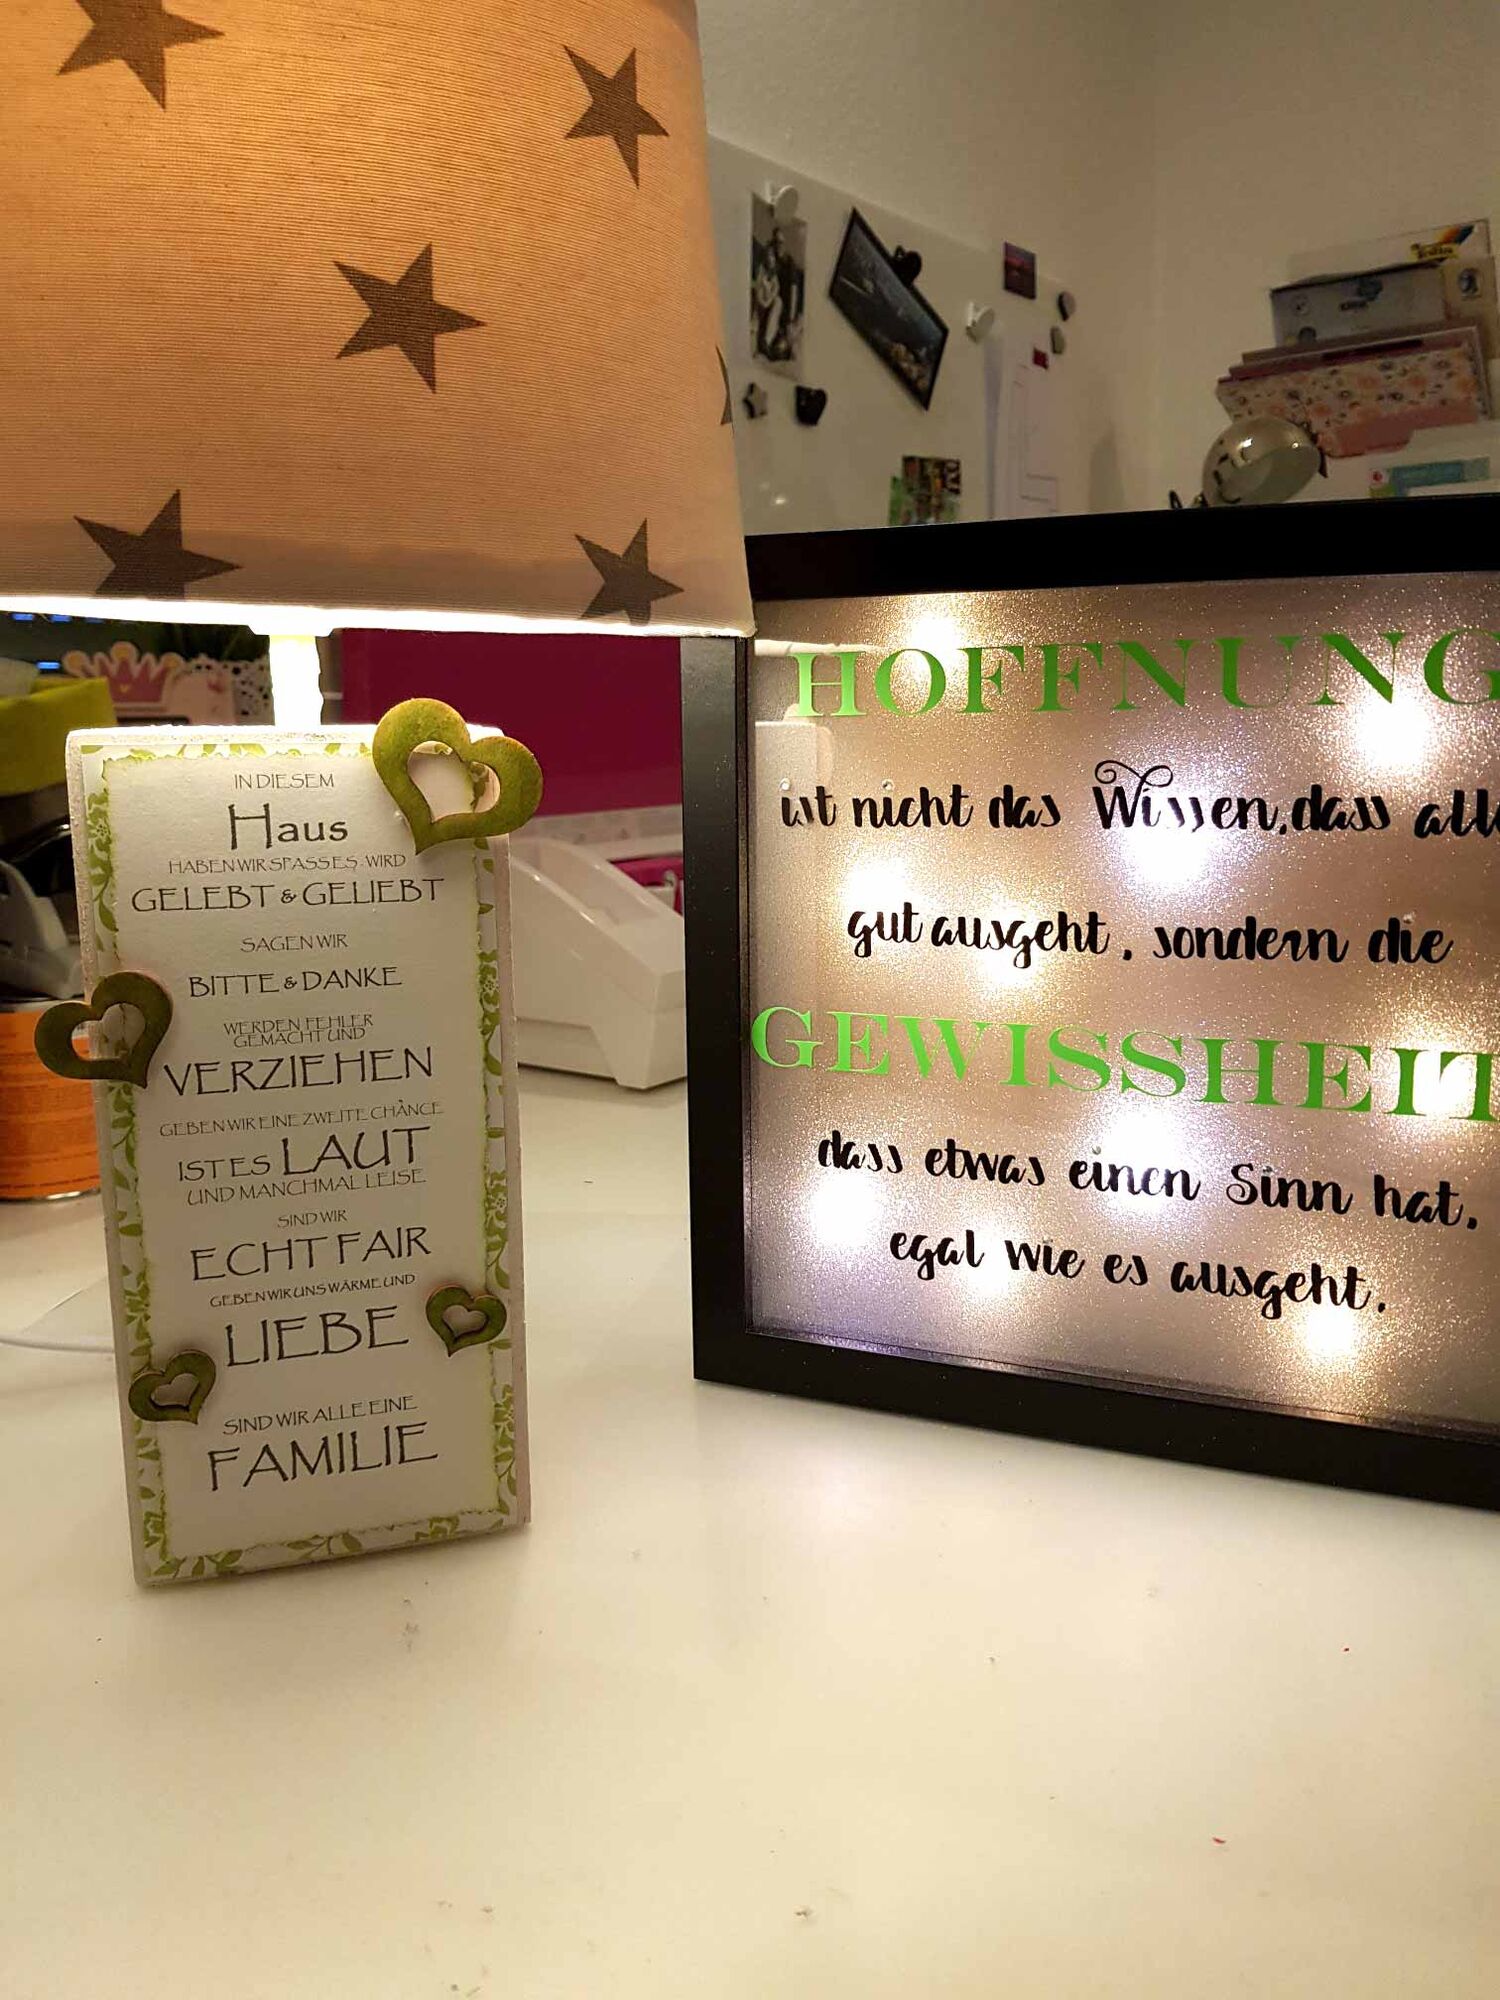 IN DIESEM
Haus
HABEN WIR SPASS ES WIRD
GELEBT & GELIEBT
SAGEN WIR
BITTE & DANKE
WERDEN FEHLER
GEMACHT UND
VERZIEHEN
GEBEN WIR EINE ZWEITE CHANCE
IST ES LAUT
UND MANCHMAL LEISE
SIND WIR
ECHT FAIR
GEBEN WIR UNS WÄRME UND
LIEBE
SIND WIR ALLE EINE
FAMILIE
HOFFNUNG
ist nicht das Wissen, dass alle
gut ausgeht, sondern die
GEWISSHEIT
dass etwas einen Sinn hat.
egal wie es ausgeht.